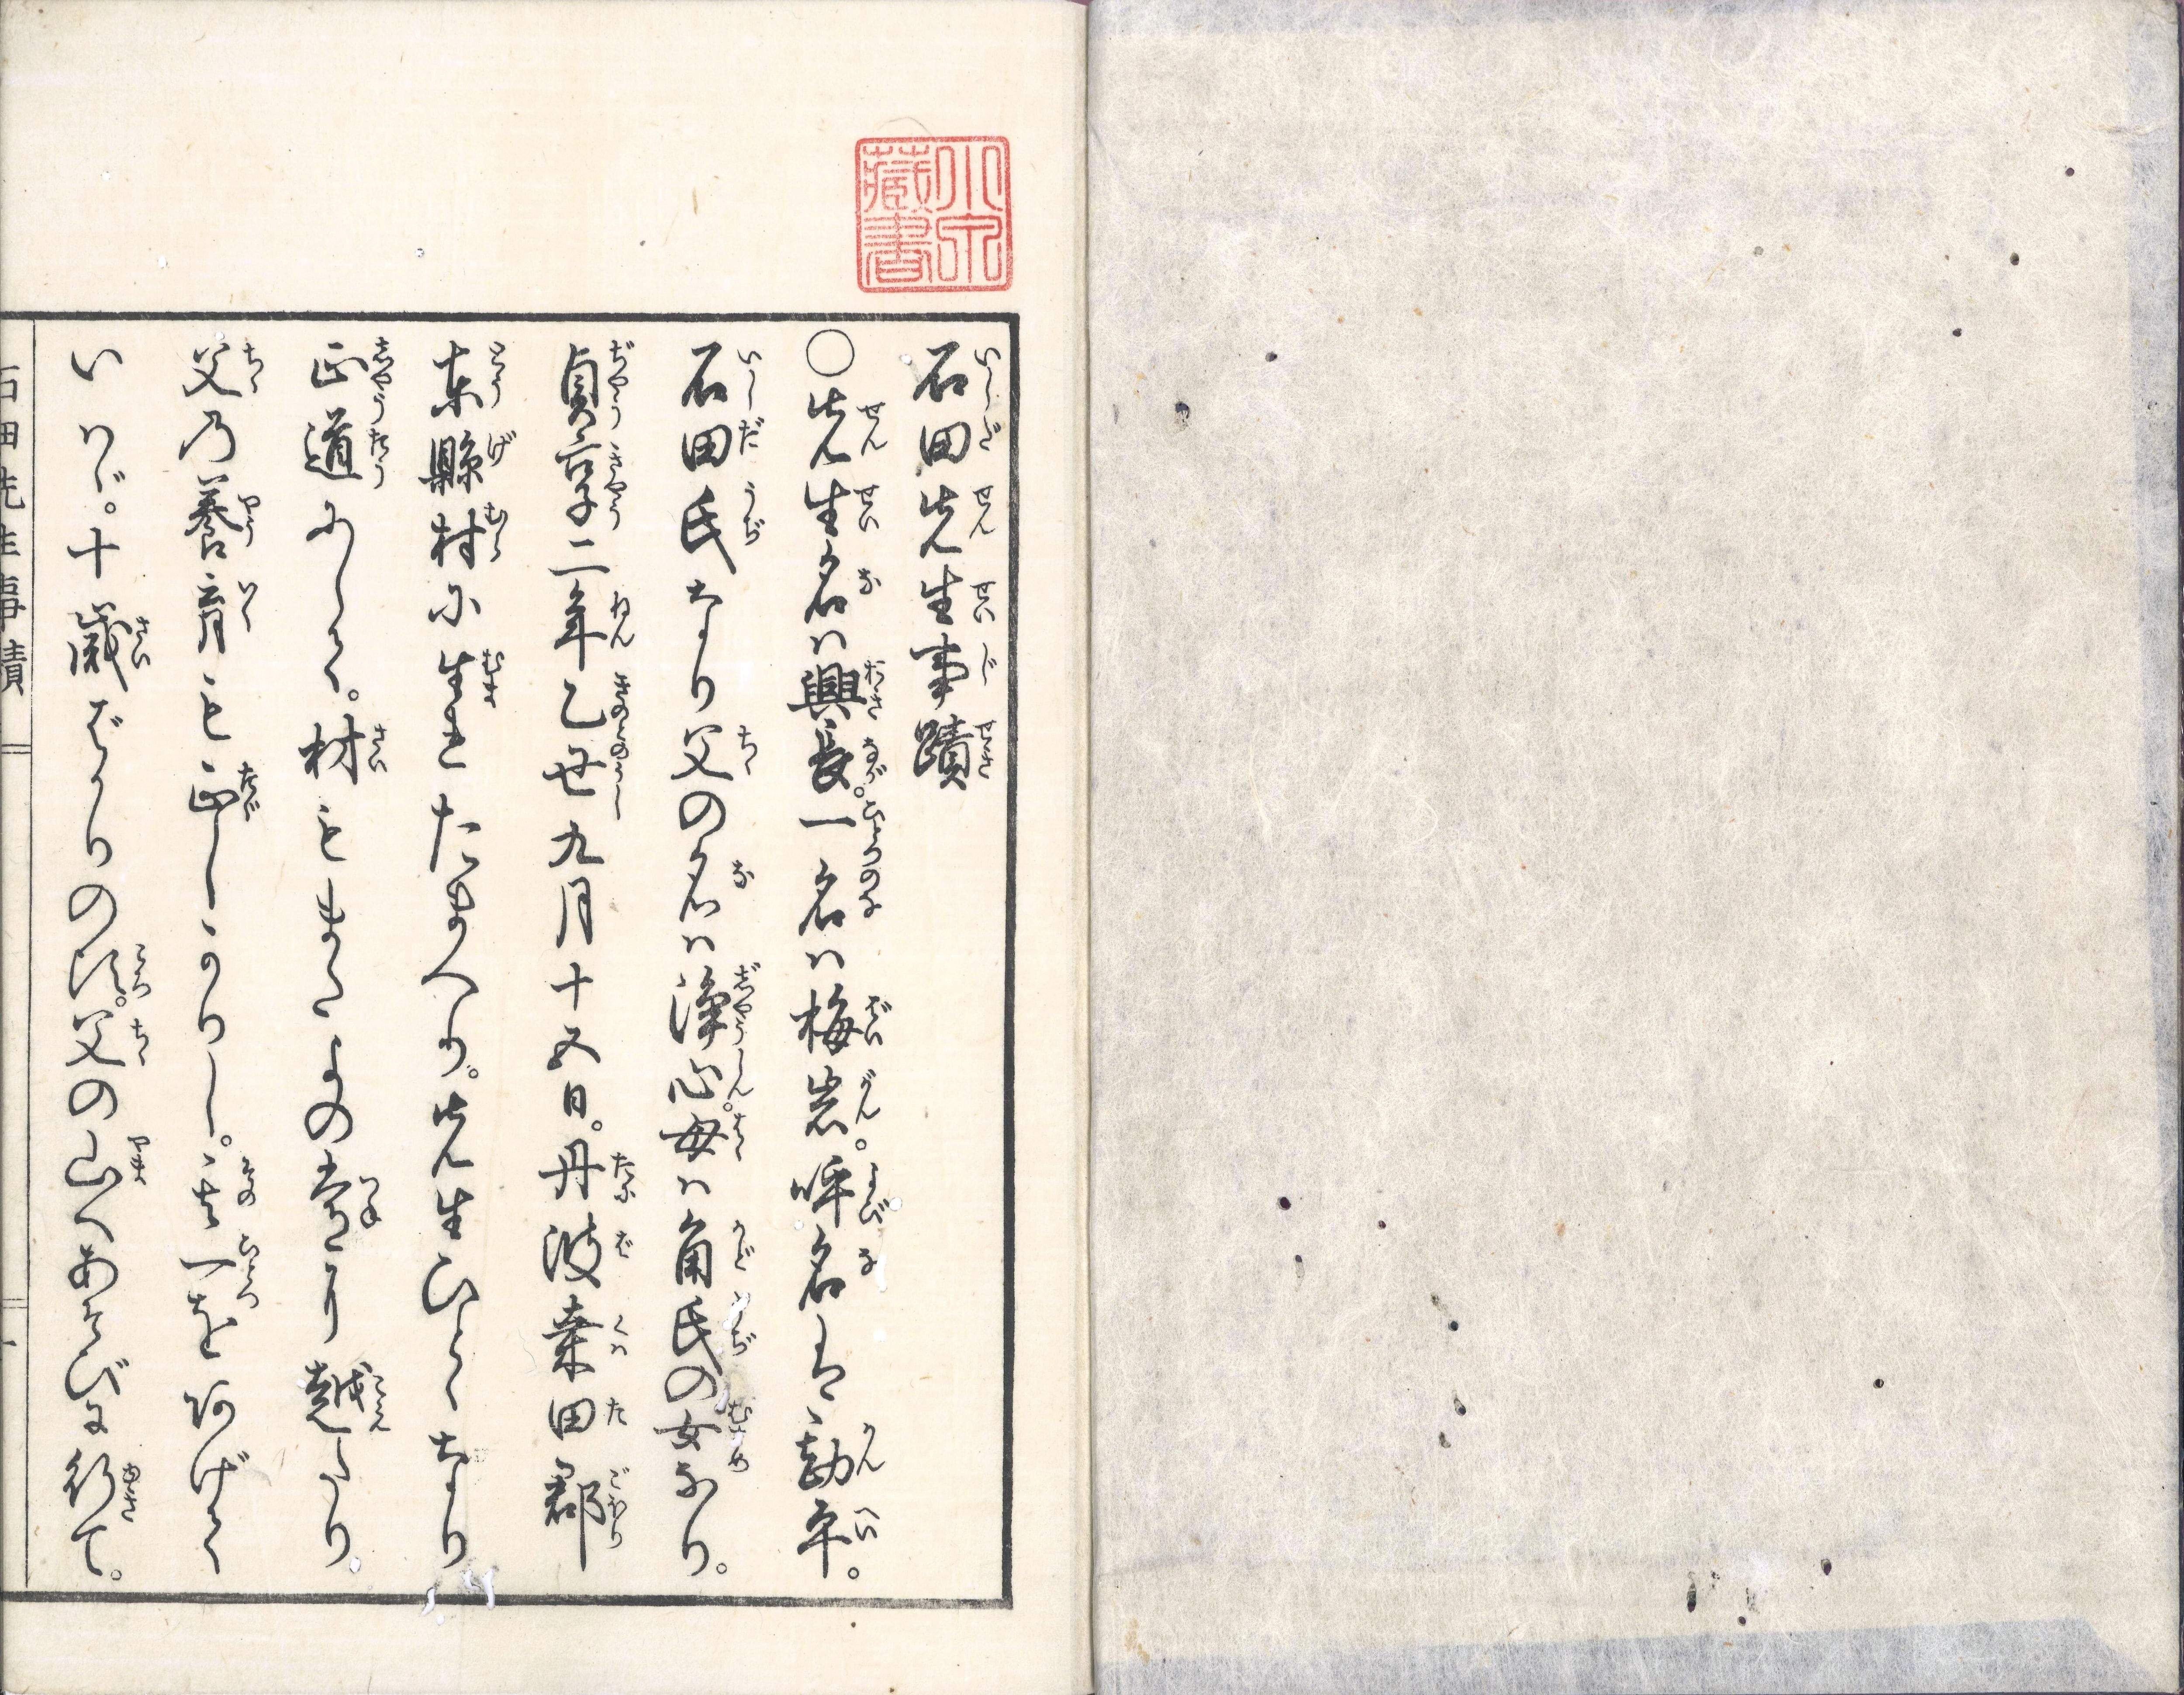 石田先生事蹟
○先生名ハ興長。一名ハ梅岩。呼名は勘平。
石田氏なり父の名ハ浄心。母ハ角氏の女なり。
貞享二年乙丑九月十五日。丹波桒田郡
東縣村に生れたまへり。先生ひとゝなり
正道にして。材もまたよの常より越たり。
父乃養育も正しかりし。其一を阿げて
いハゞ。十歳ばかりの頃。父の山へあそびに行て。
石田先生事蹟 一
蔵書